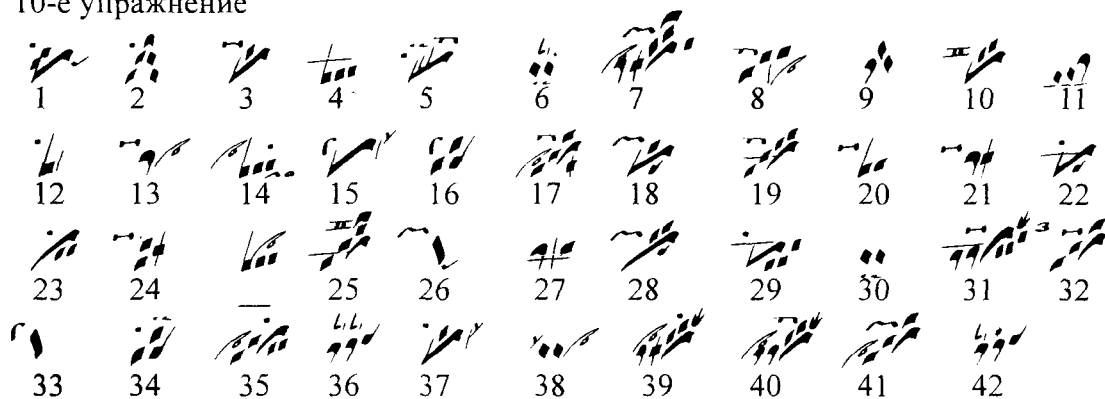 10-е упражнение
1 2 3 4 5 6 7 8 9 10 11
12 13 14 15 16 17 18 19 20 21 22
23 24 25 26 27 28 29 30 31 32
33 34 35 36 37 38 39 40 41 42